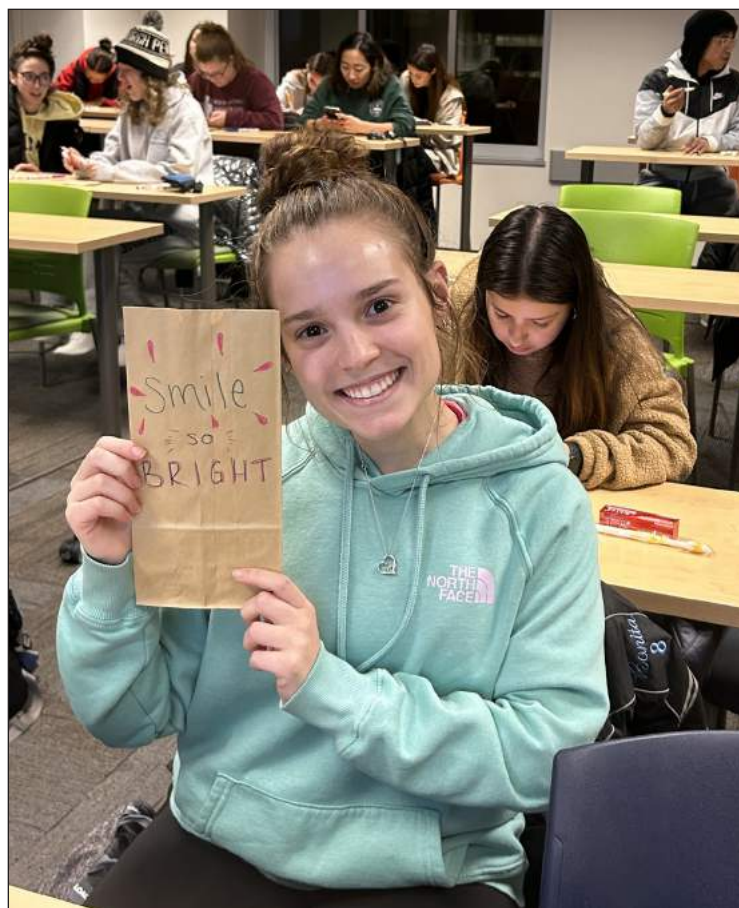 smile
so
BRIGHT
THE
NORTH
FACE
8